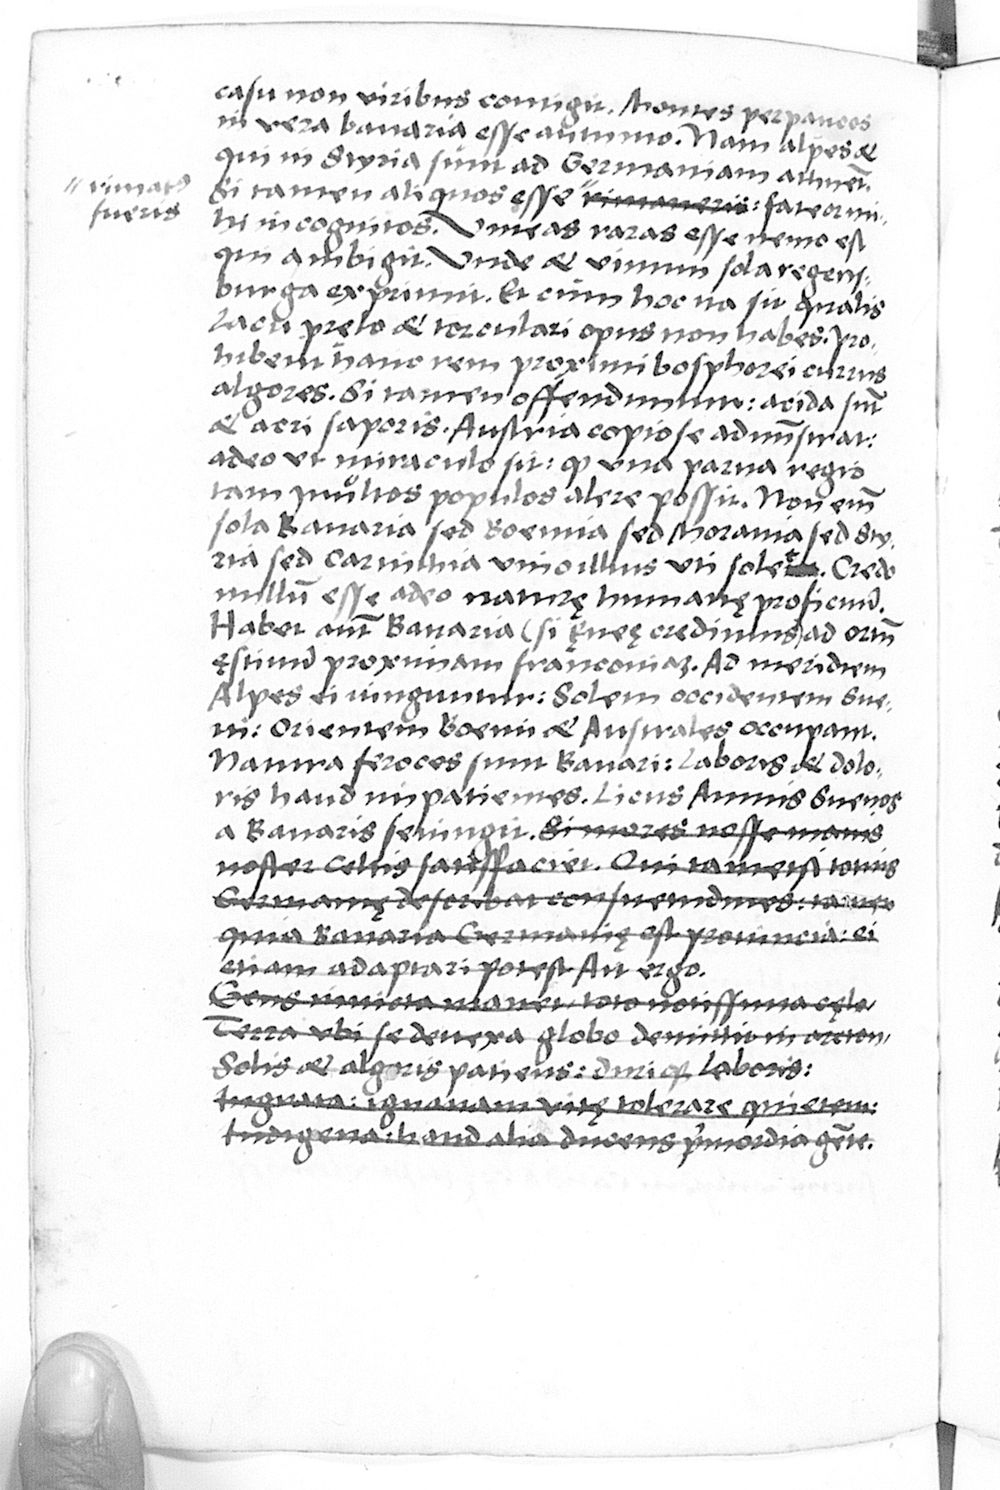 casu non viribus contigit. Montes perpaucos
in vera bauaria esse autumno. Nam alpes &
qui in Styria sūnt ad Germaniam attinēt.
"rimatꝰ
fueris
Si tamen aliquos esse" rimaueris: fateor mi-
hi incognitos. Vineas raras esse nemo est
qui ambigit. Vnde & vinum sola regens-
burga exprimit. Et cūm hoc ita sit qualis
Lacu prelo & torculari opus non habes. Pro-
hibent hanc rem proximi bosphorei currus
algores. Si tamen offendūntur: acida sūt
& acri saporis. Austria copiose admīstrat:
adeo vt miraculo sit: ꝙ vna parua regio
tam multos populos alere possit. Non enī
sola Bauaria sed Boemia sed Morauia sed Sty-
ria sed Carinthia vino illius vti solet. Credo
nullū esse adeo naturę humanę proficuū.
Habet aūt Bauaria (si Ęneę credimus) ad ortū
ęstiuū proximam franconiaꝫ. Ad meridiem
Alpes ei iunguntur: Solem occidentem Sue-
ui: Orientem Boemi & Australes occupant.
Natura feroces sunt Bauari: Laboris & dolo-
ris haud impatientes. Licus Amnis Sueuos
a Bauaris seiungit. Si mores nosse mauis
noster Celtis satisfaciet. Qui tametsi totius
Germanię describat consuetudines: tamen
quia Bauaria Germanię est prouincia: ei
etiam adaptari potest Ait ergo.
Gens inuicta manet toto notissima cęlo
Terra vbi se deuexa globo demittit in arcton
Solis & algoris patiens: duriqꝫ laboris:
Ingrata: ignauam vitę tolerare quietem:
Indigena: haud alia ducens p̄mordia gēte.